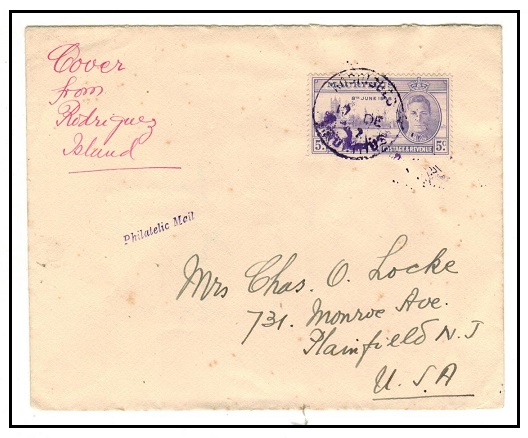 Cover
from
Rodriguez
Island
8TH JUNE
5c POSTAGE & REVENUE 5c
Philatelic Mail
Mrs Chas. O. Locke
731. Monroe Ave.
Plainfield N. J
U. S. A